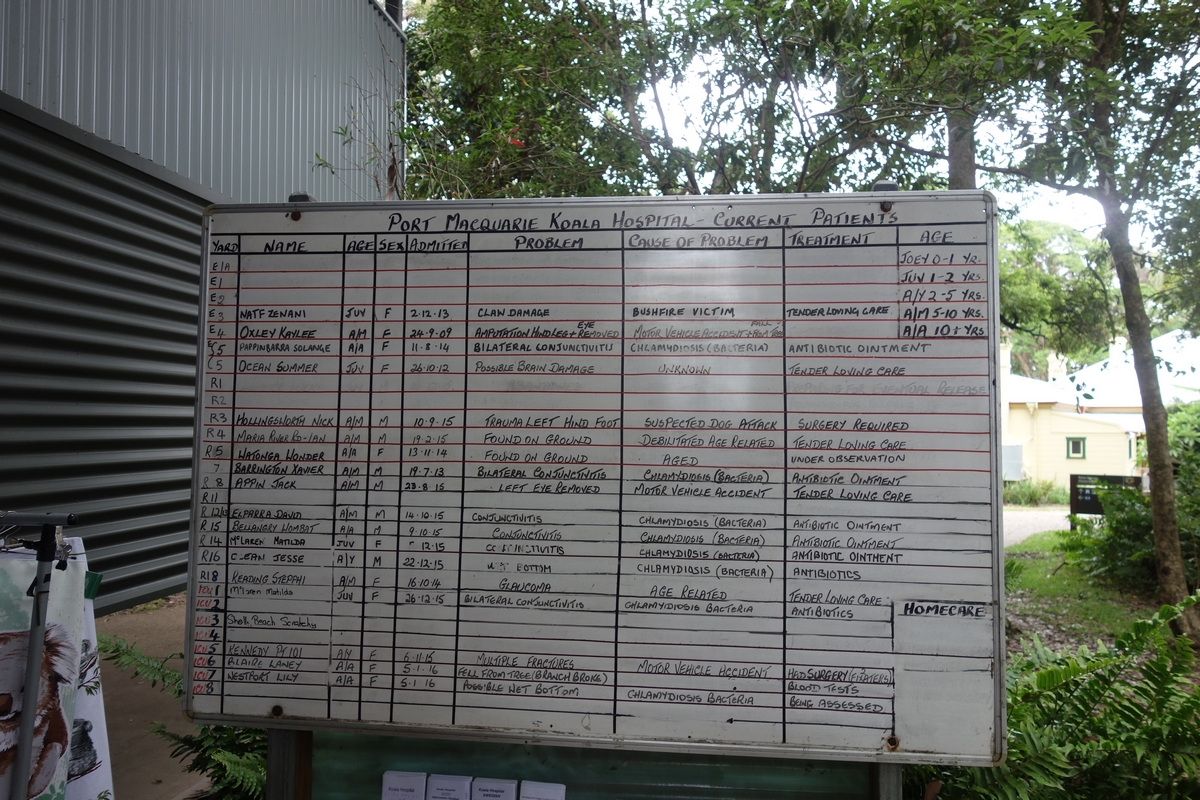 PORT MACQUARIE KOALA HOSPITAL - CURRENT PATIENTS
YARD NAME AGE SEX ADMITTED PROBLEM CAUSE OF PROBLEM TREATMENT AGE
E/A JOEY 0-1 YR.
E1 JUV 1-2 YRS.
E2 A/Y 2-5 YRS.
E3 NATF ZENANI JUV F 2.12.13 CLAW DAMAGE BUSHFIRE VICTIM TENDER LOVING CARE A/M 5-10 YRS.
E4 OXLEY KAYLEE A/M F 24.9.09 AMPUTATION HIND LEG + EYE REMOVED MOTOR VEHICLE ACCIDENT + FALL FROM TREE A/A 10+ YRS
5 PAPPINBARRA SOLANGE A/A F 11.8.14 BILATERAL CONJUNCTIVITIS CHLAMYDIOSIS (BACTERIA) ANTIBIOTIC OINTMENT
5 OCEAN SUMMER JUV F 26.10.12 POSSIBLE BRAIN DAMAGE UNKNOWN TENDER LOVING CARE
R1 FOR EVENTUAL RELEASE
R2
R3 HOLLINGSWORTH NICK A/M M 10.9.15 TRAUMA LEFT HIND FOOT SUSPECTED DOG ATTACK SURGERY REQUIRED
R4 MARIA RIVER RO-IAN A/M M 19.2.15 FOUND ON GROUND DEBILITATED AGE RELATED TENDER LOVING CARE
R5 WATONGA WONDER A/A F 13.11.14 FOUND ON GROUND AGED UNDER OBSERVATION
7 BARRINGTON XAVIER A/M M 19.7.13 BILATERAL CONJUNCTIVITIS CHLAMYDIOSIS (BACTERIA) ANTIBIOTIC OINTMENT
R 8 APPIN JACK A/M M 23.8.15 LEFT EYE REMOVED MOTOR VEHICLE ACCIDENT TENDER LOVING CARE
R11
R ELPARRA DAVID A/M M 14.10.15 CONJUNCTIVITIS CHLAMYDIOSIS (BACTERIA) ANTIBIOTIC OINTMENT
R 15 BELLANGRY WOMBAT A/A M 9.10.15 CONJUNCTIVITIS CHLAMYDIOSIS (BACTERIA) ANTIBIOTIC OINTMENT
R 14 McLAREN MATILDA JUV F 12.15 CHLAMYDIOSIS (BACTERIA) ANTIBIOTIC OINTMENT
R16 JESSE A/Y M 22.12.15 BOTTOM CHLAMYDIOSIS (BACTERIA) ANTIBIOTICS
R18 KEADING STEPPHI A/M F 16.10.14 GLAUCOMA AGE RELATED TENDER LOVING CARE
ICU 1 McLaren Matilda JUV F 26.12.15 BILATERAL CONJUNCTIVITIS CHLAMYDIOSIS BACTERIA ANTIBIOTICS HOMECARE
ICU 2
ICU 3 Shelly Beach Scratchy
ICU 4
ICU 5 KENNEDY PT 101 A/Y F 6.11.15 MULTIPLE FRACTURES MOTOR VEHICLE ACCIDENT HAD SURGERY
ICU 6 BLAIRE LANEY A/A F 5.1.16 FELL FROM TREE (BRANCH BROKE) BLOOD TESTS
ICU 7 WESTPORT LILY A/A F 5.1.16 POSSIBLE WET BOTTOM CHLAMYDIOSIS BACTERIA BEING ASSESSED
ICU 8